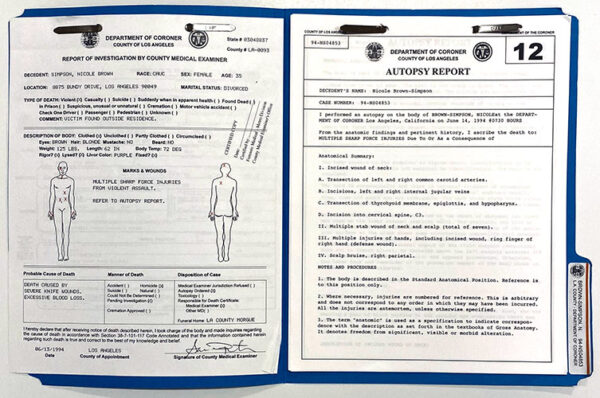 DEPARTMENT OF CORONER
COUNTY OF LOS ANGELES
State # 03040837
County # LA-0093
REPORT OF INVESTIGATION BY COUNTY MEDICAL EXAMINER
DECEDENT: SIMPSON, NICOLE BROWN RACE: CAUC SEX: FEMALE AGE: 35
LOCATION: 8875 BUNDY DRIVE, LOS ANGELES 90049 MARITAL STATUS: DIVORCED
TYPE OF DEATH: Violent (X) Casualty ( ) Suicide ( ) Suddenly when in apparent health ( ) Found Dead ( )
in Prison ( ) Suspicious, unusual or unnatural ( ) Cremation ( ) Motor vehicle accident ( )
Check One Driver ( ) Passenger ( ) Pedestrian ( ) Unknown ( )
COMMENT: VICTIM FOUND OUTSIDE RESIDENCE.
CERTIFIED COPY
DESCRIPTION OF BODY: Clothed (X) Unclothed ( ) Partly Clothed ( ) Circumcised ( )
Eyes: BROWN Hair: BLONDE Mustache: NO Beard: NO
Weight: 125 LBS. Height: 62 IN Body Temp: 72 DEG
Rigor? (X) Lysed? ( ) Livor Color: PURPLE Fixed? ( )
MARKS & WOUNDS
MULTIPLE SHARP FORCE INJURIES
FROM VIOLENT ASSAULT.
REFER TO AUTOPSY REPORT.
Probable Cause of Death
DEATH CAUSED BY
SEVERE KNIFE WOUNDS,
EXCESSIVE BLOOD LOSS.
Manner of Death
Accident ( ) Homicide (X)
Suicide ( ) Natural ( )
Could Not be Determined ( )
Pending Investigation ( )
Cremation Approved ( )
Disposition of Case
Medical Examiner Jurisdiction Refused ( )
Autopsy Ordered (X)
Toxicology ( )
Responsible for Death Certificate
Medical Examiner (X)
Other MD ( )
Funeral Home LA COUNTY MORGUE
I hereby declare that after receiving notice of death described herein, I took charge of the body and made inquiries regarding
the cause of death in accordance with Section 38-7-101-107 Code Annotated and that the information contained herein
regarding such death is true and correct to the best of my knowledge and belief.
06/13/1994 LOS ANGELES
Date County of Appointment Signature of County Medical Examiner
94-NS04853
DEPARTMENT OF CORONER
COUNTY OF LOS ANGELES
12
AUTOPSY REPORT
DECEDENT'S NAME: Nicole Brown-Simpson
CASE NUMBER: 94-NS04853
I performed an autopsy on the body of BROWN-SIMPSON, NICOLEat the DEPART-
MENT OF CORONER Los Angeles, California on June 14, 1994 @0730 HOURS
From the anatomic findings and pertinent history, I ascribe the death to:
MULTIPLE SHARP FORCE INJURIES Due To Or As a Consequence of
Anatomical Summary:
I. Incised wound of neck:
A. Transection of left and right common carotid arteries.
B. Incisions, left and right internal jugular veins
C. Transection of thyrohyoid membrane, epiglottis, and hypopharynx.
D. Incision into cervical spine, C3.
II. Multiple stab wound of neck and scalp (total of seven).
III. Multiple injuries of hands, including incised wound, ring finger of
right hand (defense wound).
IV. Scalp bruise, right parietal.
NOTES AND PROCEDURES
1. The body is described in the Standard Anatomical Position. Reference is
to this position only.
2. Where necessary, injuries are numbered for reference. This is arbitrary
and does not correspond to any order in which they may have been incurred.
All the injuries are antemortem, unless otherwise specified.
3. The term "anatomic" is used as a specification to indicate correspon-
dence with the description as set forth in the textbooks of Gross Anatomy.
It denotes freedom from significant, visible or morbid alteration.
BROWN-SIMPSON, N. 94-NS04853
LA COUNTY - DEPARTMENT OF CORONER